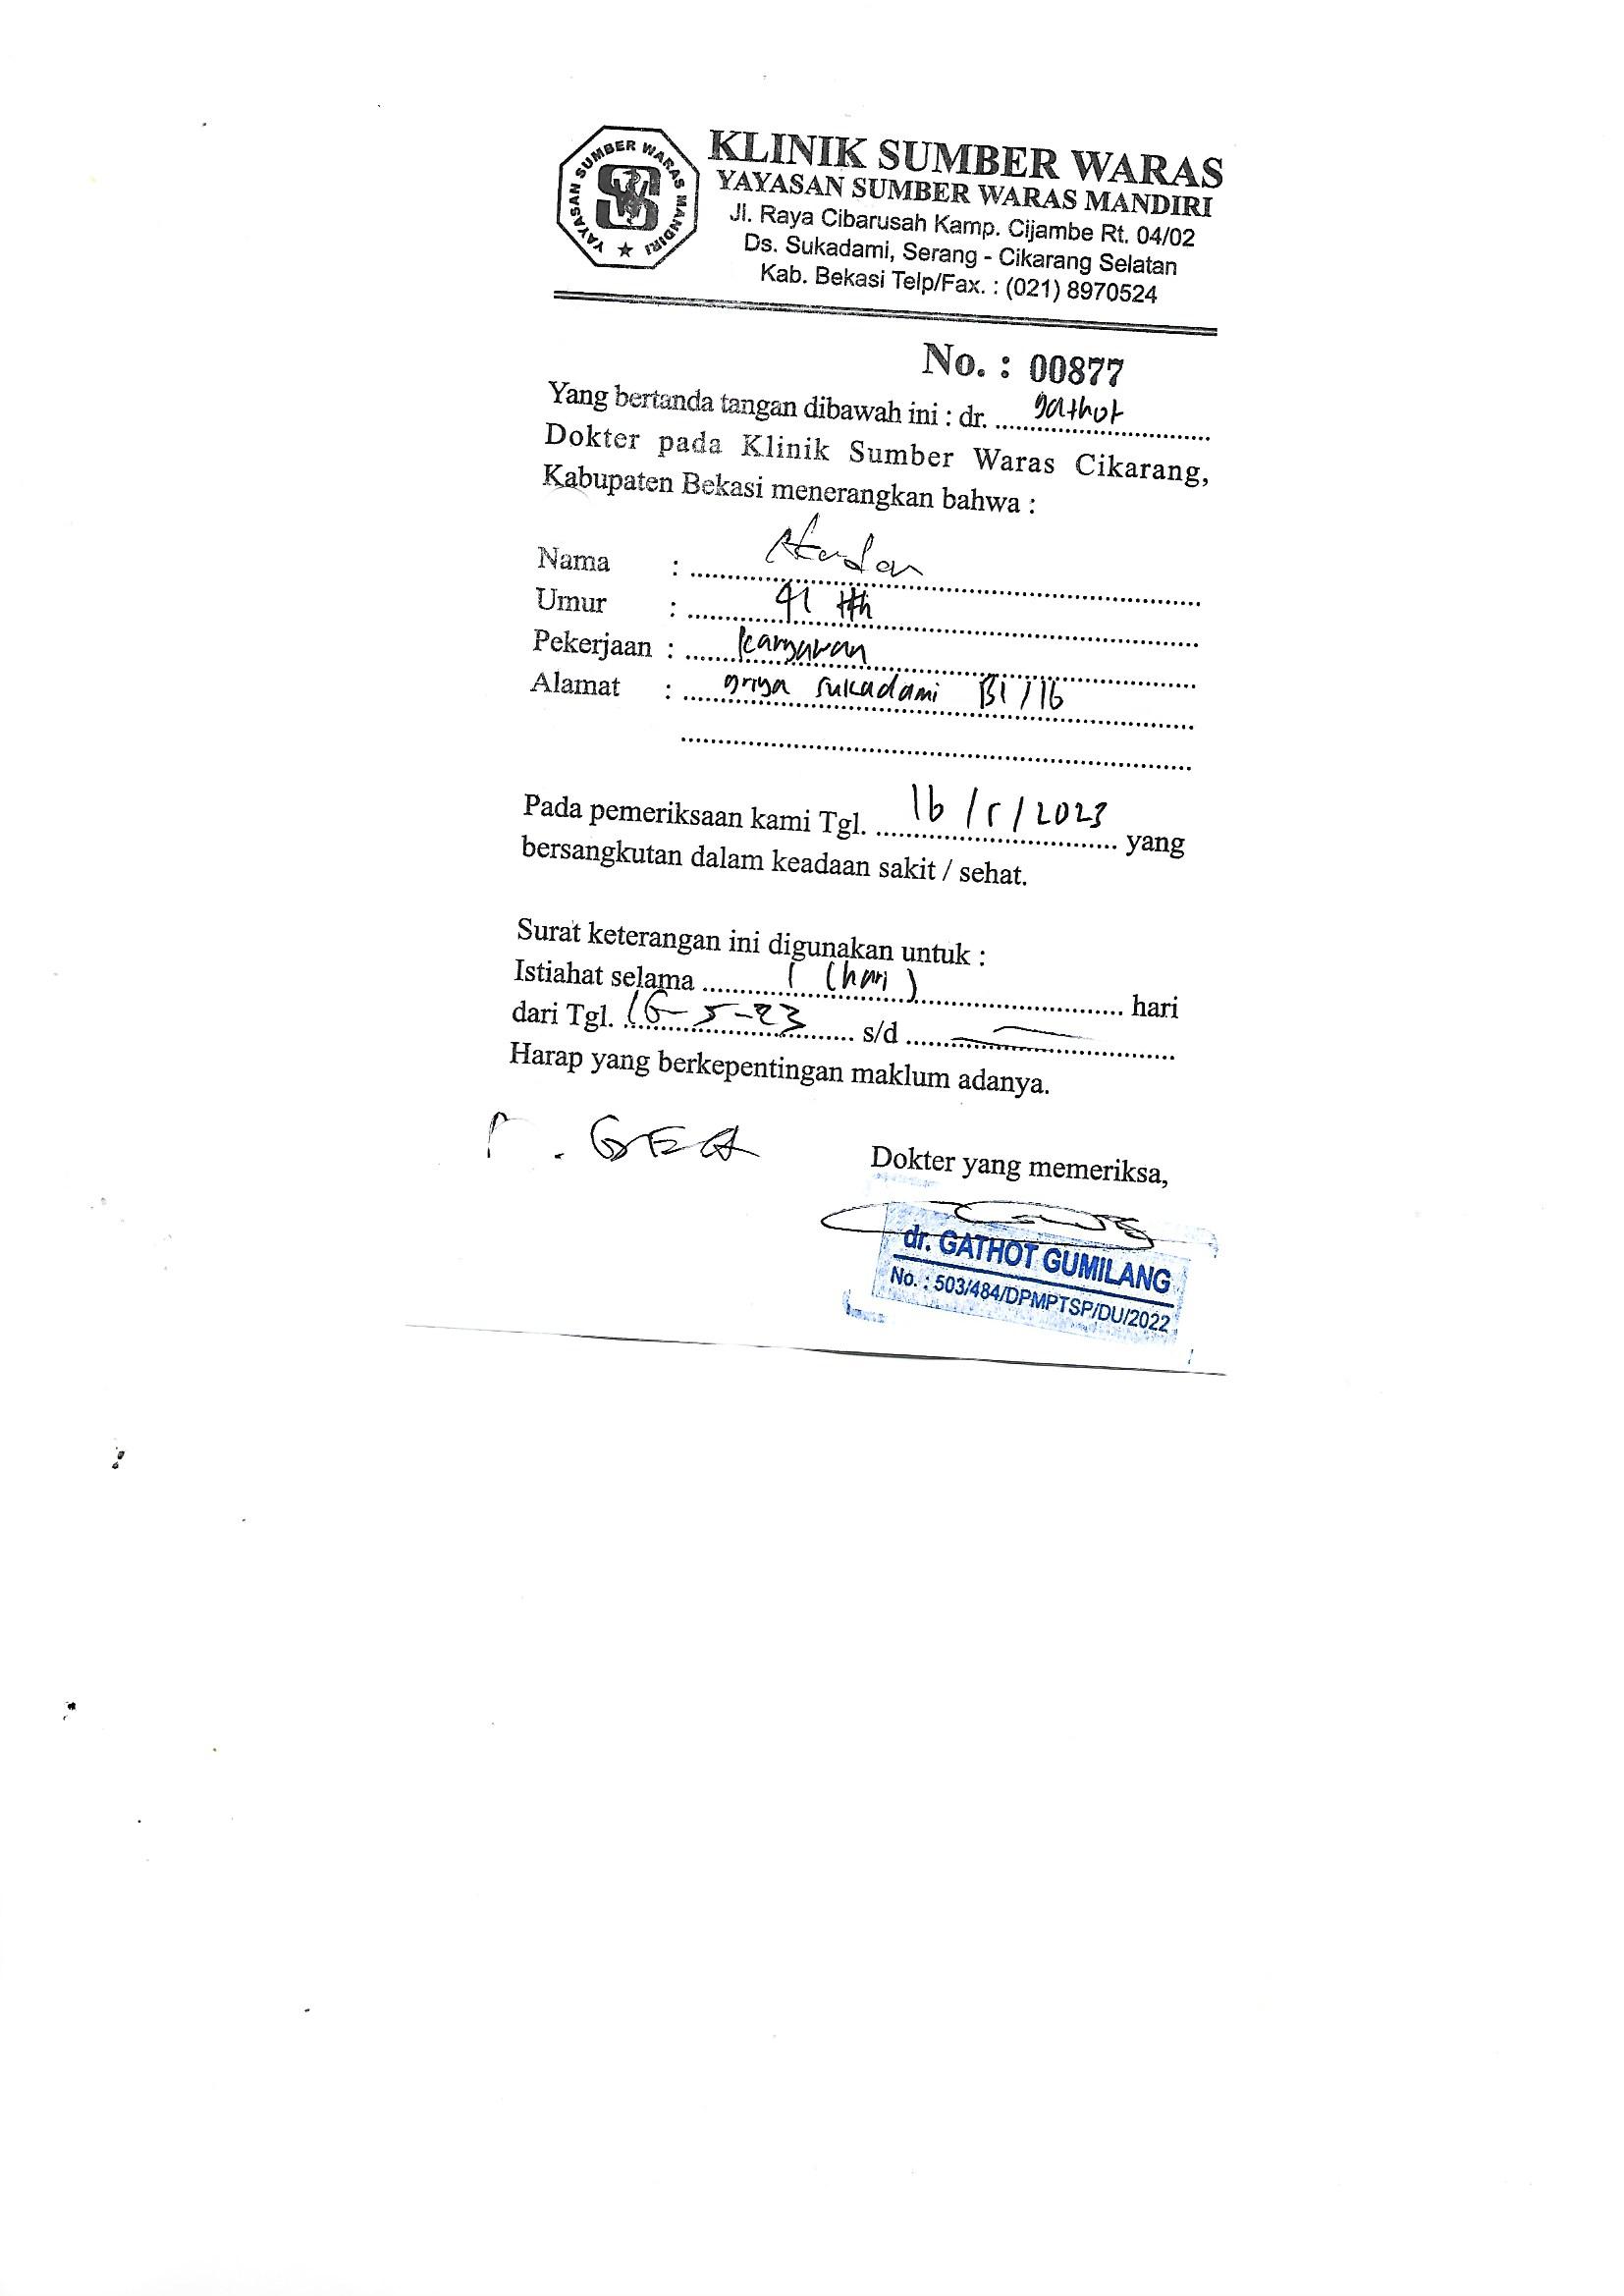 YAYASAN SUMBER WARAS MANDIRI
KLINIK SUMBER WARAS
YAYASAN SUMBER WARAS MANDIRI
Jl. Raya Cibarusah Kamp. Cijambe Rt. 04/02
Ds. Sukadami, Serang - Cikarang Selatan
Kab. Bekasi Telp/Fax. : (021) 8970524
No. : 00877
Yang bertanda tangan dibawah ini : dr. gathot
Dokter pada Klinik Sumber Waras Cikarang,
Kabupaten Bekasi menerangkan bahwa :
Nama :
Umur : 41 th
Pekerjaan : karyawan
Alamat : griya sukadami B1/16
Pada pemeriksaan kami Tgl. 16/5/2023 yang
bersangkutan dalam keadaan sakit / sehat.
Surat keterangan ini digunakan untuk :
Istiahat selama 1 (hari) hari
dari Tgl. 16-5-23 s/d —
Harap yang berkepentingan maklum adanya.
GEA
Dokter yang memeriksa,
dr. GATHOT GUMILANG
No. : 503/484/DPMPTSP/DU/2022